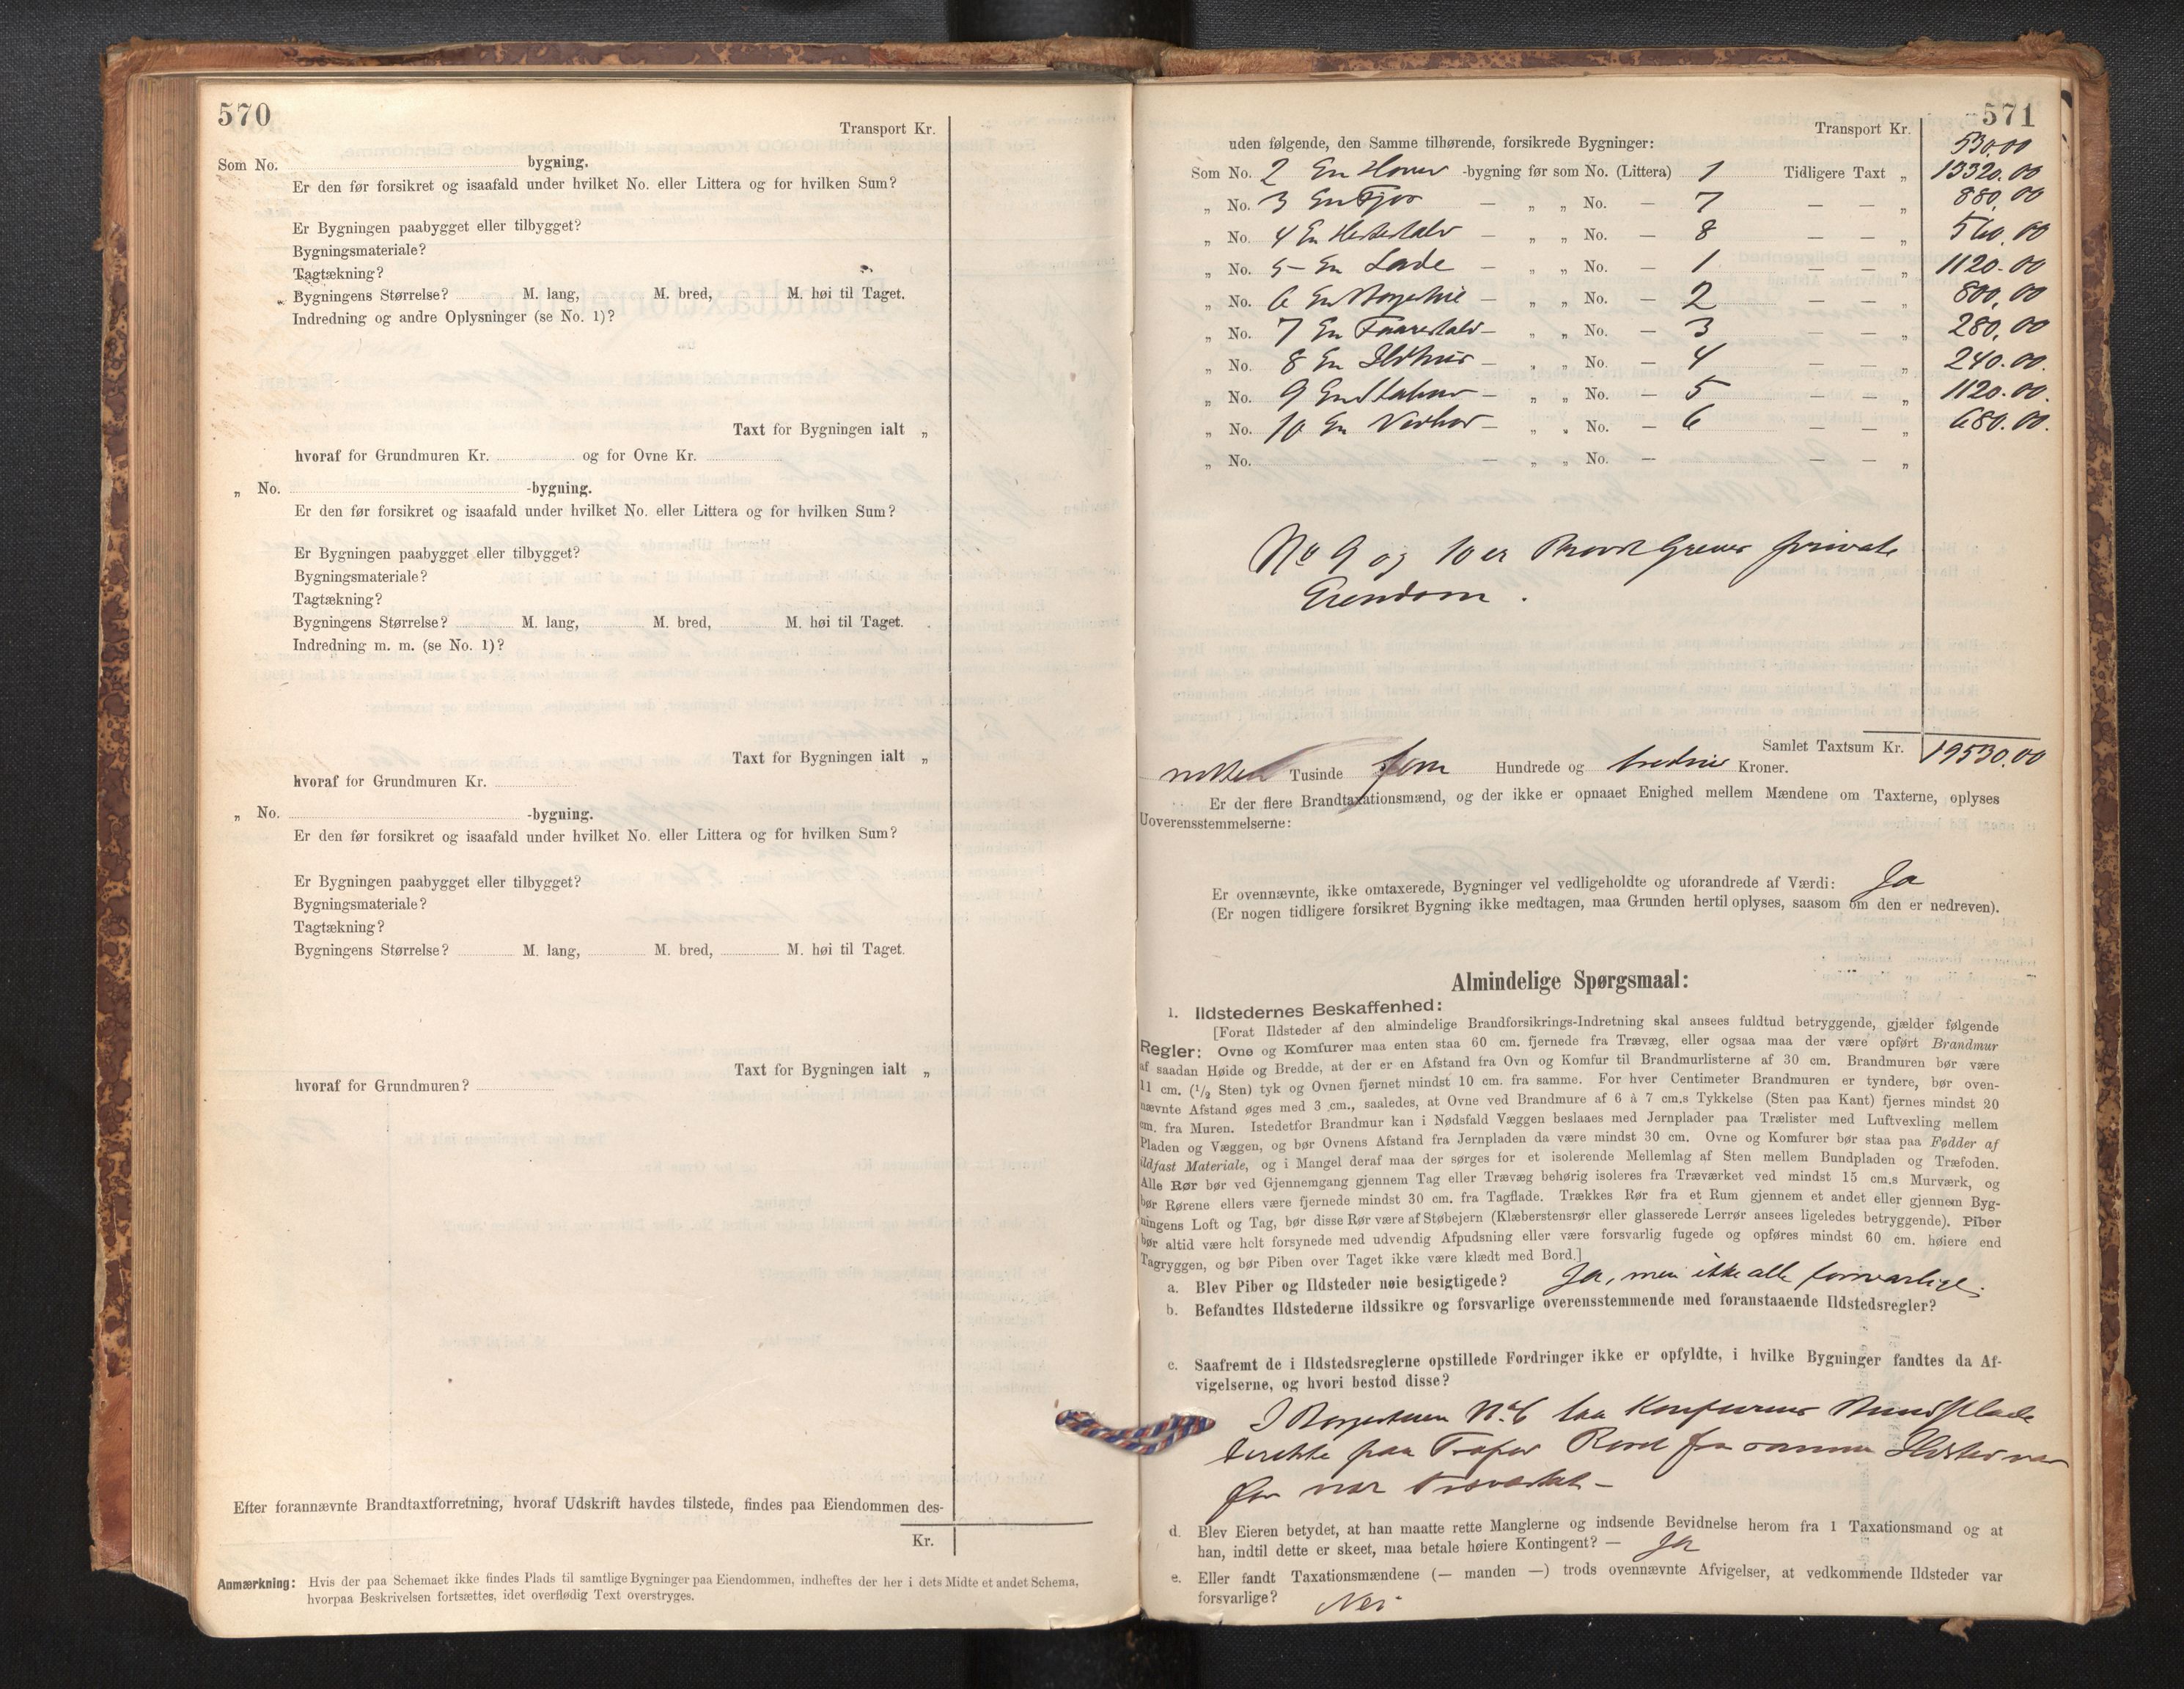 570
Transport Kr.
Som No. bygning.
Er den før forsikret og isaafald under hvilket No. eller Littera og for hvilken Sum?
Er Bygningen paabygget eller tilbygget?
Bygningsmateriale?
Tagtækning?
Bygningens Størrelse? M. lang, M. bred, M. høi til Taget.
Indredning og andre Oplysninger (se No. 1)?
Taxt for Bygningen ialt „
hvoraf for Grundmuren Kr. og for Ovne Kr.
„ No. -bygning.
Er den før forsikret og isaafald under hvilket No. eller Littera og for hvilken Sum?
Er Bygningen paabygget eller tilbygget?
Bygningsmateriale?
Tagtækning?
Bygningens Størrelse? M. lang, M. bred, M. høi til Taget.
Indredning m. m. (se No. 1)?
Taxt for Bygningen ialt „
hvoraf for Grundmuren Kr.
„ No. -bygning.
Er den før forsikret og isaafald under hvilket No. eller Littera og for hvilken Sum?
Er Bygningen paabygget eller tilbygget?
Bygningsmateriale?
Tagtækning?
Bygningens Størrelse? M. lang, M. bred, M. høi til Taget.
Taxt for Bygningen ialt „
hvoraf for Grundmuren?
Efter forannævnte Brandtaxtforretning, hvoraf Udskrift havdes tilstede, findes paa Eiendommen des-
Kr.
Anmærkning: Hvis der paa Schemaet ikke findes Plads til samtlige Bygninger paa Eiendommen, indheftes der her i dets Midte et andet Schema,
hvorpaa Beskrivelsen fortsættes, idet overflødig Text overstryges.
571
Transport Kr. 530.00
uden følgende, den Samme tilhørende, forsikrede Bygninger:
Som No. 2 En -bygning før som No. (Littera) 1 Tidligere Taxt „ 13320.00
„ No. 3 En Fjos — „ „ No. — 7 — — „ 880.00
„ No. 4 En Hestestald — „ „ No. — 8 — — „ 560.00
„ No. 5 En Lade — „ „ No. — 1 — — „ 1120.00
„ No. 6 En — „ „ No. — 2 — — „ 800.00
„ No. 7 En Faarestald — „ „ No. — 3 — — „ 280.00
„ No. 8 En Ildhus — „ „ No. — 4 — — „ 240.00
„ No. 9 En Stabur — „ „ No. — 5 — — „ 1120.00
„ No. 10 En — „ „ No. — 6 — — „ 680.00
„ No. — „ „ No. — — — „
No 9 og 10 er private
Eiendom.
Samlet Taxtsum Kr. 19530.00
nitten Tusinde fem Hundrede og tredive Kroner.
Er der flere Brandtaxationsmænd, og der ikke er opnaaet Enighed mellem Mændene om Taxterne, oplyses
Uoverensstemmelserne:
Er ovennævnte, ikke omtaxerede, Bygninger vel vedligeholdte og uforandrede af Værdi: Ja
(Er nogen tidligere forsikret Bygning ikke medtagen, maa Grunden hertil oplyses, saasom om den er nedreven).
Almindelige Spørgsmaal:
1. Ildstedernes Beskaffenhed:
[Forat Ildsteder af den almindelige Brandforsikrings-Indretning skal ansees fuldtud betryggende, gjælder følgende
Regler: Ovne og Komfurer maa enten staa 60 cm. fjernede fra Trævæg, eller ogsaa maa der være opført Brandmur
af saadan Høide og Bredde, at der er en Afstand fra Ovn og Komfur til Brandmurlisterne af 30 cm. Brandmuren bør være
11 cm. (1/2 Sten) tyk og Ovnen fjernet mindst 10 cm. fra samme. For hver Centimeter Brandmuren er tyndere, bør oven-
nævnte Afstand øges med 3 cm., saaledes, at Ovne ved Brandmure af 6 à 7 cm.s Tykkelse (Sten paa Kant) fjernes mindst 20
cm. fra Muren. Istedetfor Brandmur kan i Nødsfald Væggen beslaaes med Jernplader paa Trælister med Luftvexling mellem
Pladen og Væggen, og bør Ovnens Afstand fra Jernpladen da være mindst 30 cm. Ovne og Komfurer bør staa paa Fødder af
ildfast Materiale, og i Mangel deraf maa der sørges for et isolerende Mellemlag af Sten mellem Bundpladen og Træfoden.
Alle Rør bør ved Gjennemgang gjennem Tag eller Trævæg behørig isoleres fra Træværket ved mindst 15 cm.s Murværk, og
bør Rørene ellers være fjernede mindst 30 cm. fra Tagflade. Trækkes Rør fra et Rum gjennem et andet eller gjennem Byg-
ningens Loft og Tag, bør disse Rør være af Støbejern (Klæberstensrør eller glasserede Lerrør ansees ligeledes betryggende). Piber
bør altid være helt forsynede med udvendig Afpudsning eller være forsvarlig fugede og opføres mindst 60 cm. høiere end
Tagryggen, og bør Piben over Taget ikke være klædt med Bord.]
a. Blev Piber og Ildsteder nøie besigtigede? Ja, men ikke alle forsvarlige.
b. Befandtes Ildstederne ildssikre og forsvarlige overensstemmende med foranstaaende Ildstedsregler?
c. Saafremt de i Ildstedsreglerne opstillede Fordringer ikke er opfyldte, i hvilke Bygninger fandtes da Af-
vigelserne, og hvori bestod disse?
I No 6 laa Komfurens Bundplade
direkte paa samme Ildsted var
for nær Træværket –
d. Blev Eieren betydet, at han maatte rette Manglerne og indsende Bevidnelse herom fra 1 Taxationsmand og at
han, indtil dette er skeet, maa betale høiere Kontingent? — Ja
e. Eller fandt Taxationsmændene (— manden —) trods ovennævnte Afvigelser, at vedkommende Ildsteder var
forsvarlige? Nei